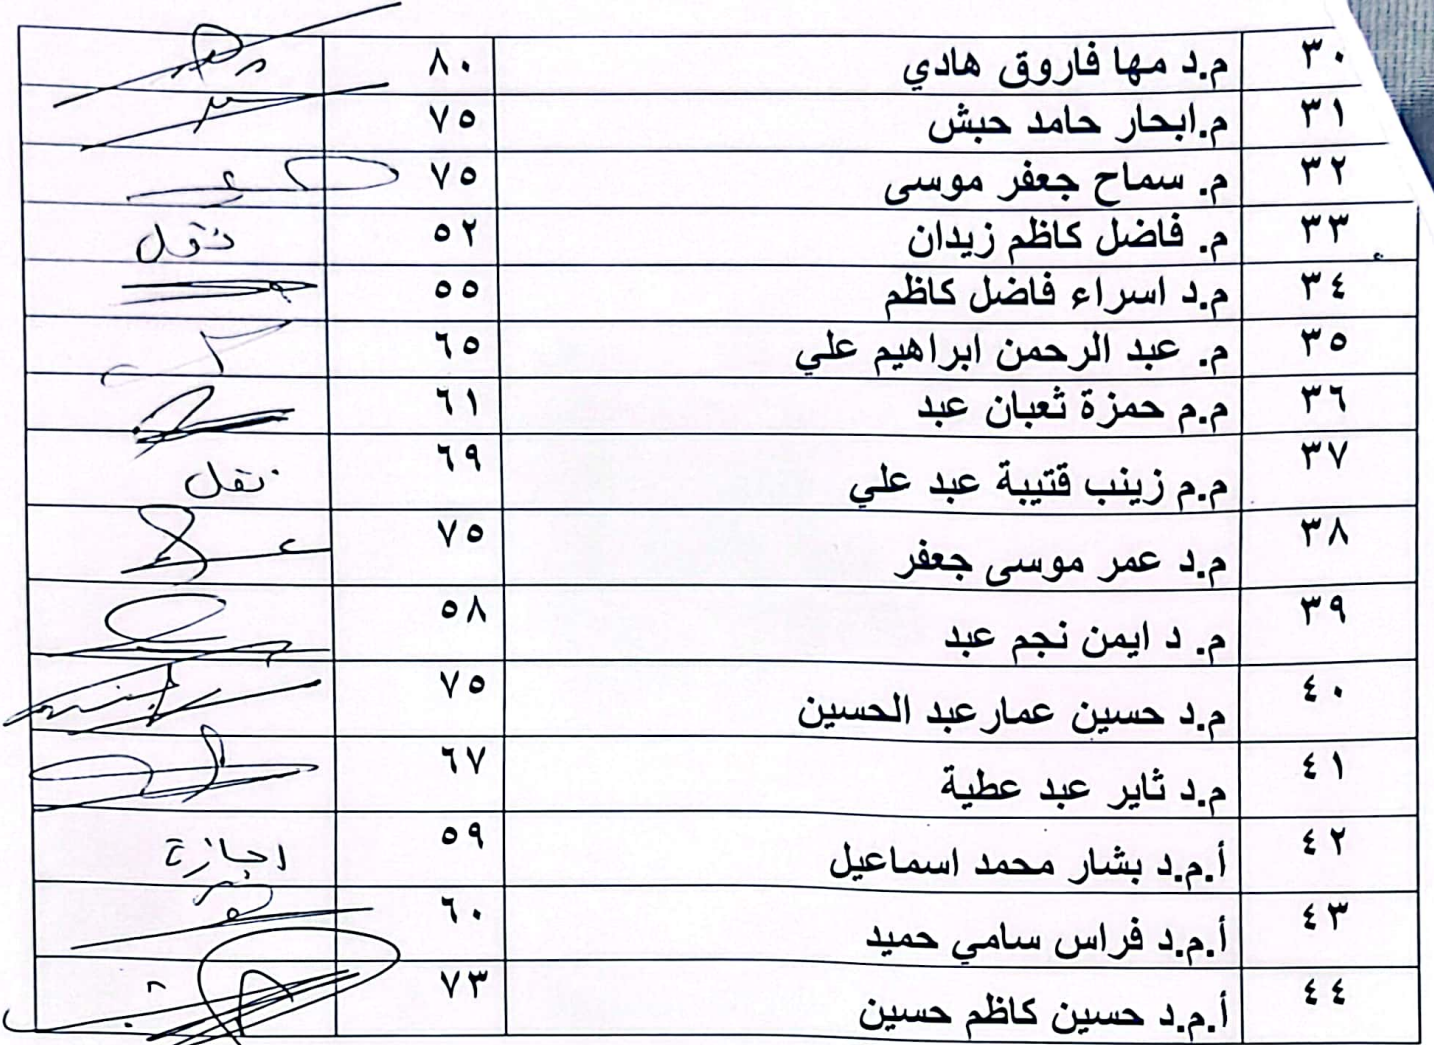 ٣٠ م.د مها فاروق هادي ٨٠
٣١ م.ابحار حامد حبش ٧٥
٣٢ م. سماح جعفر موسى ٧٥
٣٣ م. فاضل كاظم زيدان ٥٢ نقل
٣٤ م.د اسراء فاضل كاظم ٥٥
٣٥ م. عبد الرحمن ابراهيم علي ٦٥
٣٦ م.م حمزة ثعبان عبد ٦١
٣٧ م.م زينب قتيبة عبد علي ٦٩ نقل
٣٨ م.د عمر موسى جعفر ٧٥
٣٩ م. د ايمن نجم عبد ٥٨
٤٠ م.د حسين عمارعبد الحسين ٧٥
٤١ م.د ثاير عبد عطية ٦٧
٤٢ أ.م.د بشار محمد اسماعيل ٥٩ اجازة
٤٣ أ.م.د فراس سامي حميد ٦٠
٤٤ أ.م.د حسين كاظم حسين ٧٣